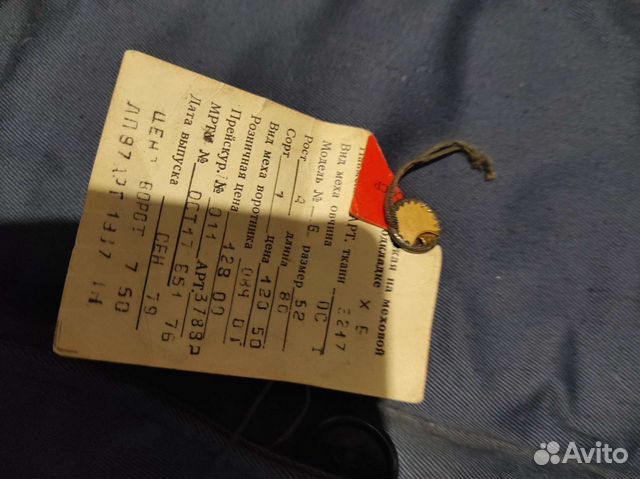 ская на меховой
подкладке Х Б
АРТ. ткани 3217
Вид меха овчина ОС Т
Модель № Б размер 52
Рост 3 длина 80
Сорт 1 цена 120 50
Вид меха воротника 084 01
Розничная цена 128 00
Прейскур. № 011 АРТ.3788Д
МРТУ № ОСТ17 651 76
Дата выпуска СЕН 79
ЦЕН ВОРОТ 7 50
СР
Avito